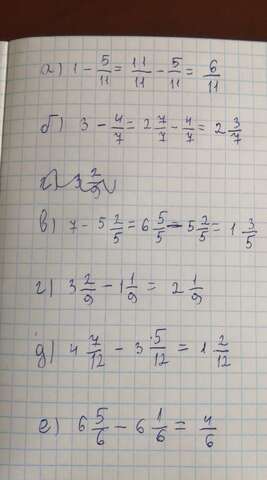 а) 1 - 5/11 = 11/11 - 5/11 = 6/11
б) 3 - 4/7 = 2 7/7 - 4/7 = 2 3/7
в) 7 - 5 2/5 = 6 5/5 - 5 2/5 = 1 3/5
г) 3 2/9 - 1 1/9 = 2 1/9
д) 4 7/12 - 3 5/12 = 1 2/12
е) 6 5/6 - 6 1/6 = 4/6